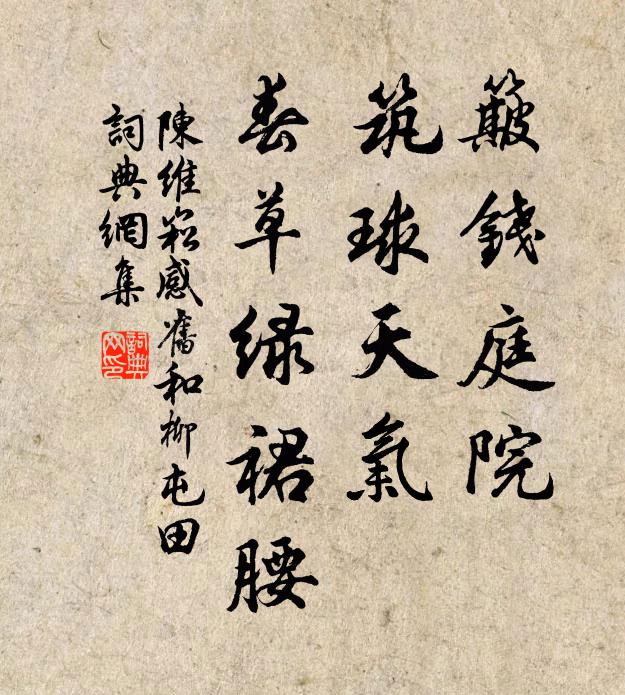 簸錢庭院
筑球天氣
春草绿裙腰
陳維崧感舊和柳屯田
詞典網集
詞典网印